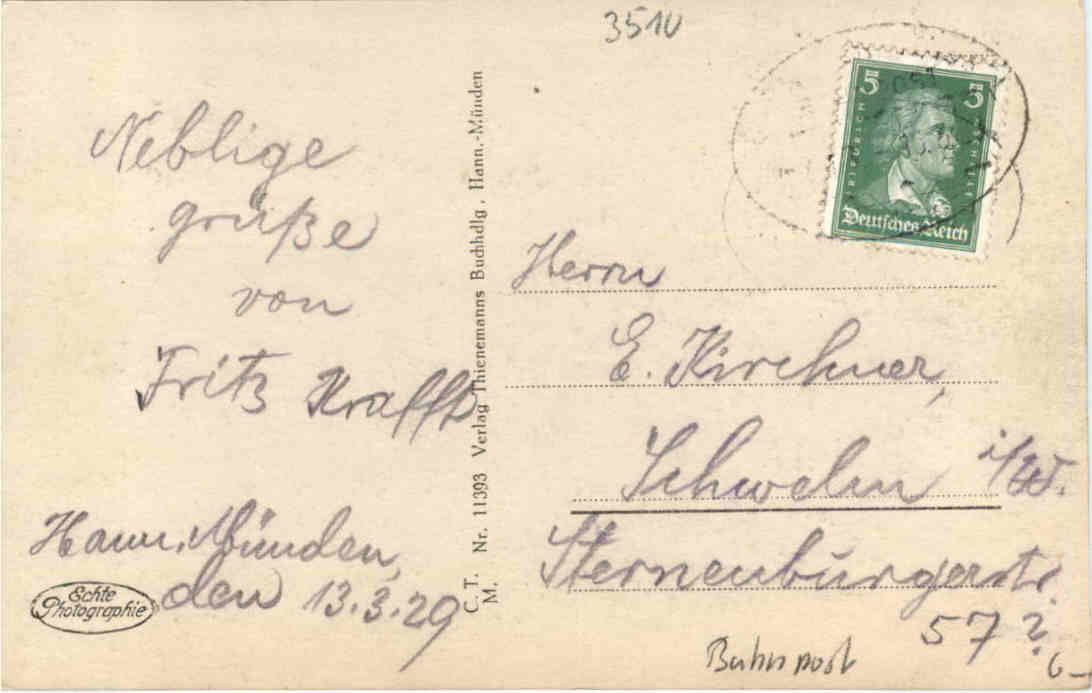 3510
Neblige
grüße
von
Fritz Krafft
Hann. Münden,
den 13.3.29
Echte
Photographie
C. T. Nr. 11393 Verlag Thienemanns Buchhdlg, Hann.-Münden
M.
5 5
FRIEDRICH SCHILLER
Deutsches Reich
Herrn
E. Kirchner,
Schwelm i/W.
Sternenburgerstr.
57?
Bahnpost
6-